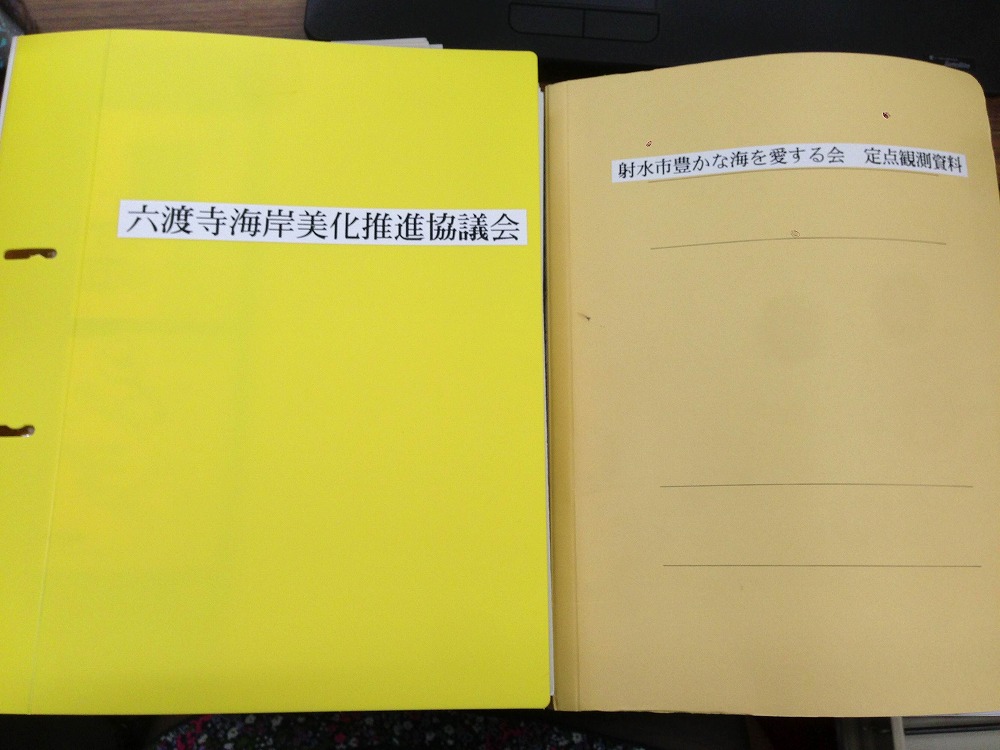 六渡寺海岸美化推進協議会
射水市豊かな海を愛する会　定点観測資料